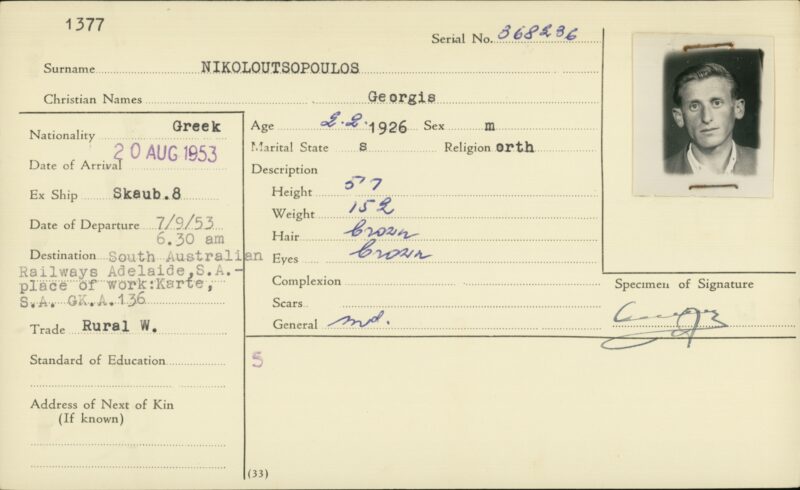 1377
Serial No. 368236
Surname NIKOLOUTSOPOULOS
Christian Names Georgis
Nationality Greek
Date of Arrival 20 AUG 1953
Ex Ship Skaub.8
Date of Departure 7/9/53
6.30 am
Destination South Australian
Railways Adelaide,S.A.-
place of work:Karte,
S.A. GK.A.136
Trade Rural W.
Standard of Education
Address of Next of Kin
(If known)
Age 2.2.1926 Sex m
Marital State s Religion orth
Description
Height 57
Weight 152
Hair brown
Eyes brown
Complexion
Scars
General md.
Specimen of Signature
5
(33)